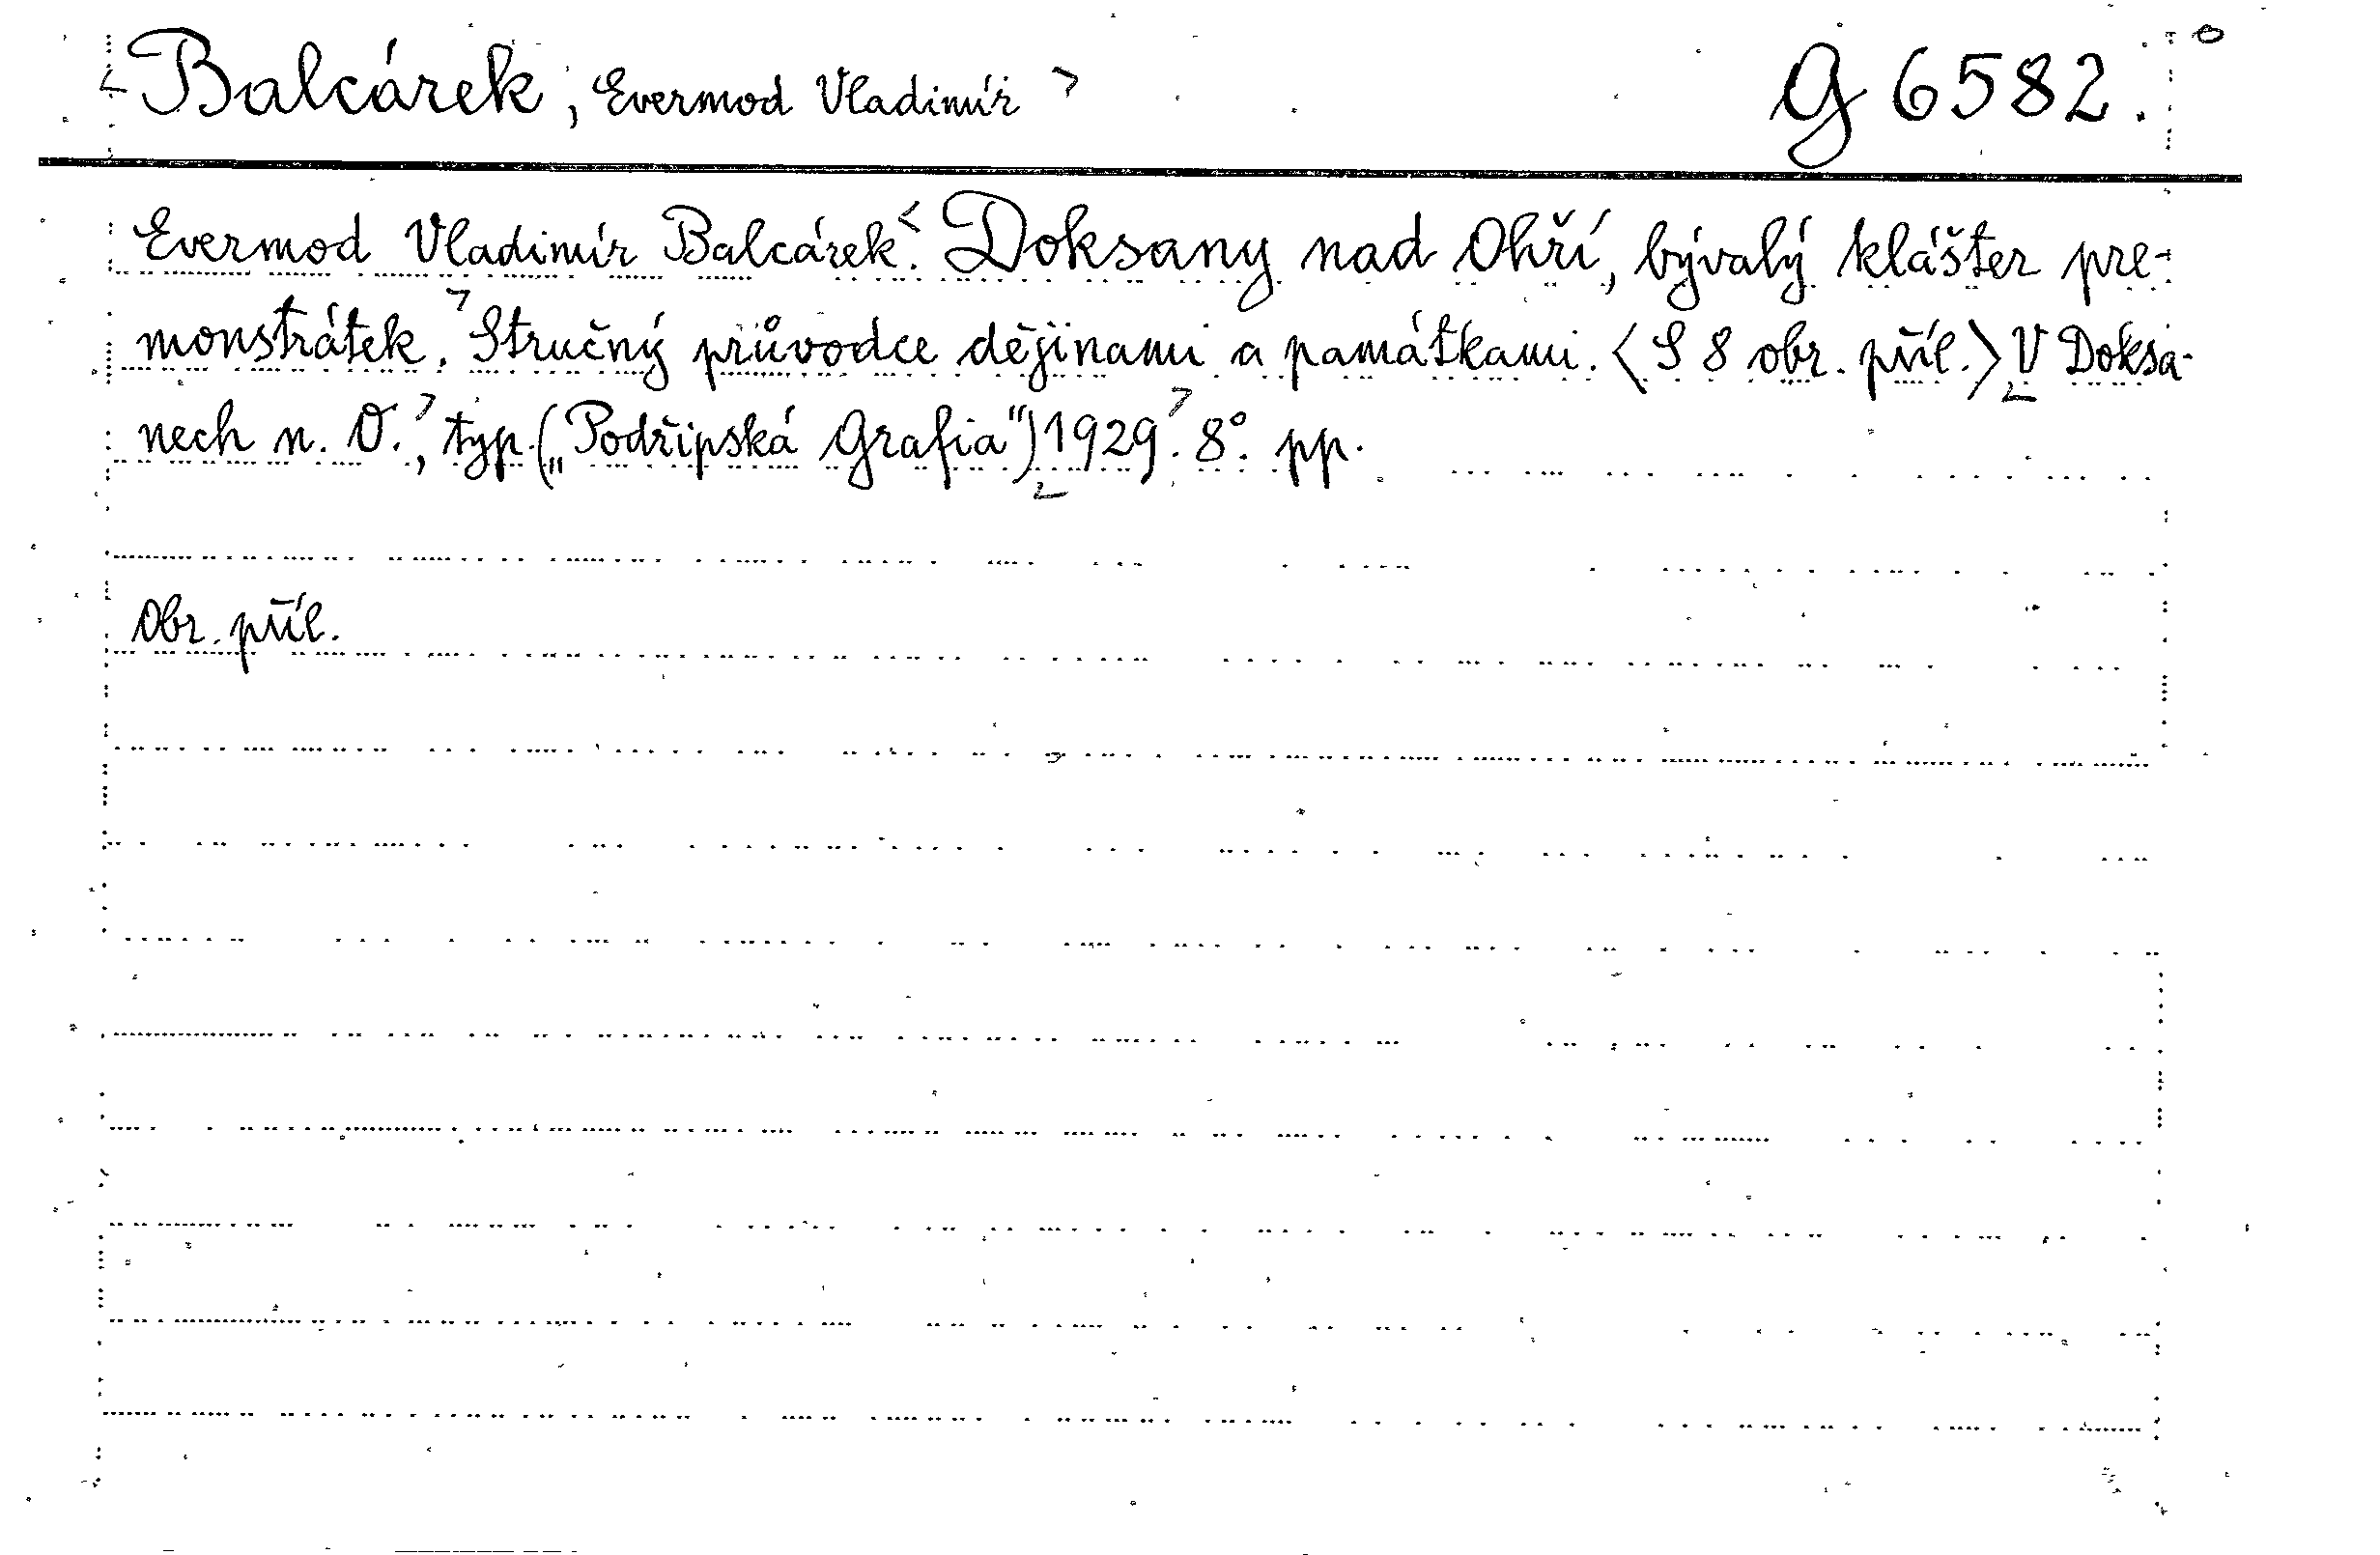 Balcárek, Evermod Vladimír G 6582.
Evermod Vladimír Balcárek. Doksany nad Ohří, bývalý klášter pre-
monstrátek. Stručný průvodce dějinami a památkami. <S 8 obr. příl.> V Doksa-
nech n. O., typ. („Podřipská Grafia") 1929. 8°. pp.
Obr. příl.